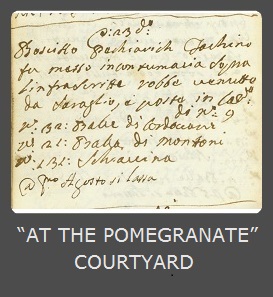 Boscitto Pechiavich Fachino
fu messo in contumacia sopra
l'infrascritte robbe venute
da Saraglio, e poste in Cas.
di n.º 9
nº. 32: Balle di Cordovani
nº. 21: Balle di montoni
nº. 131: Schiavina
Agosto si lassa
“AT THE POMEGRANATE”
COURTYARD